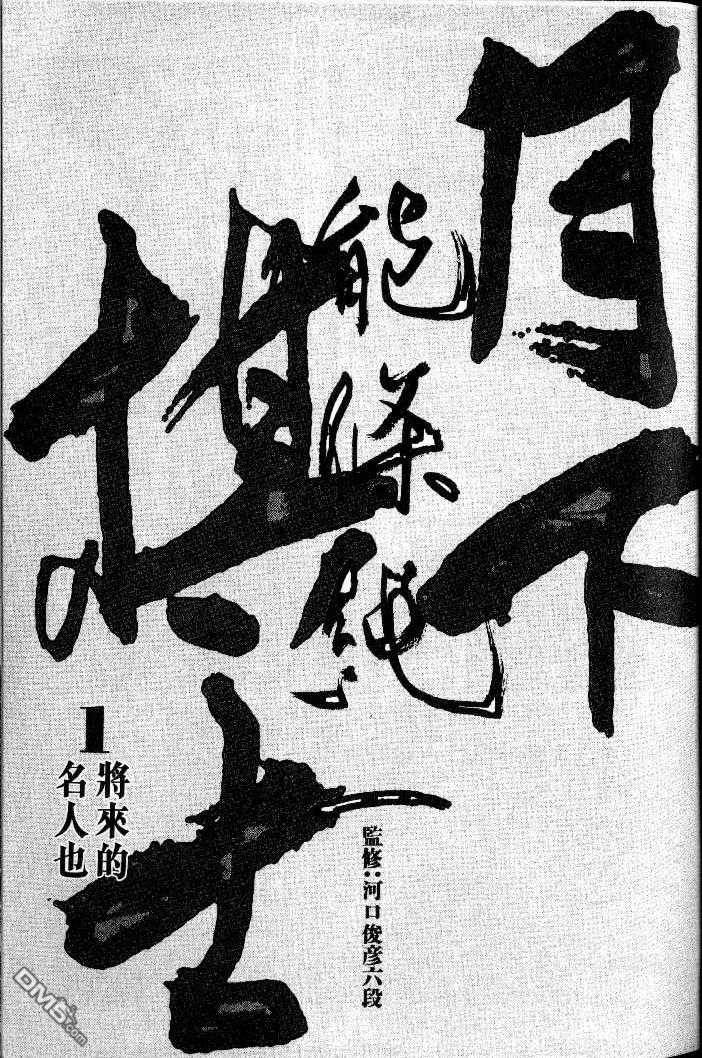 月下
棋士
能條純一
1
將來的
名人也
監修:河口俊彥六段
DM5.com